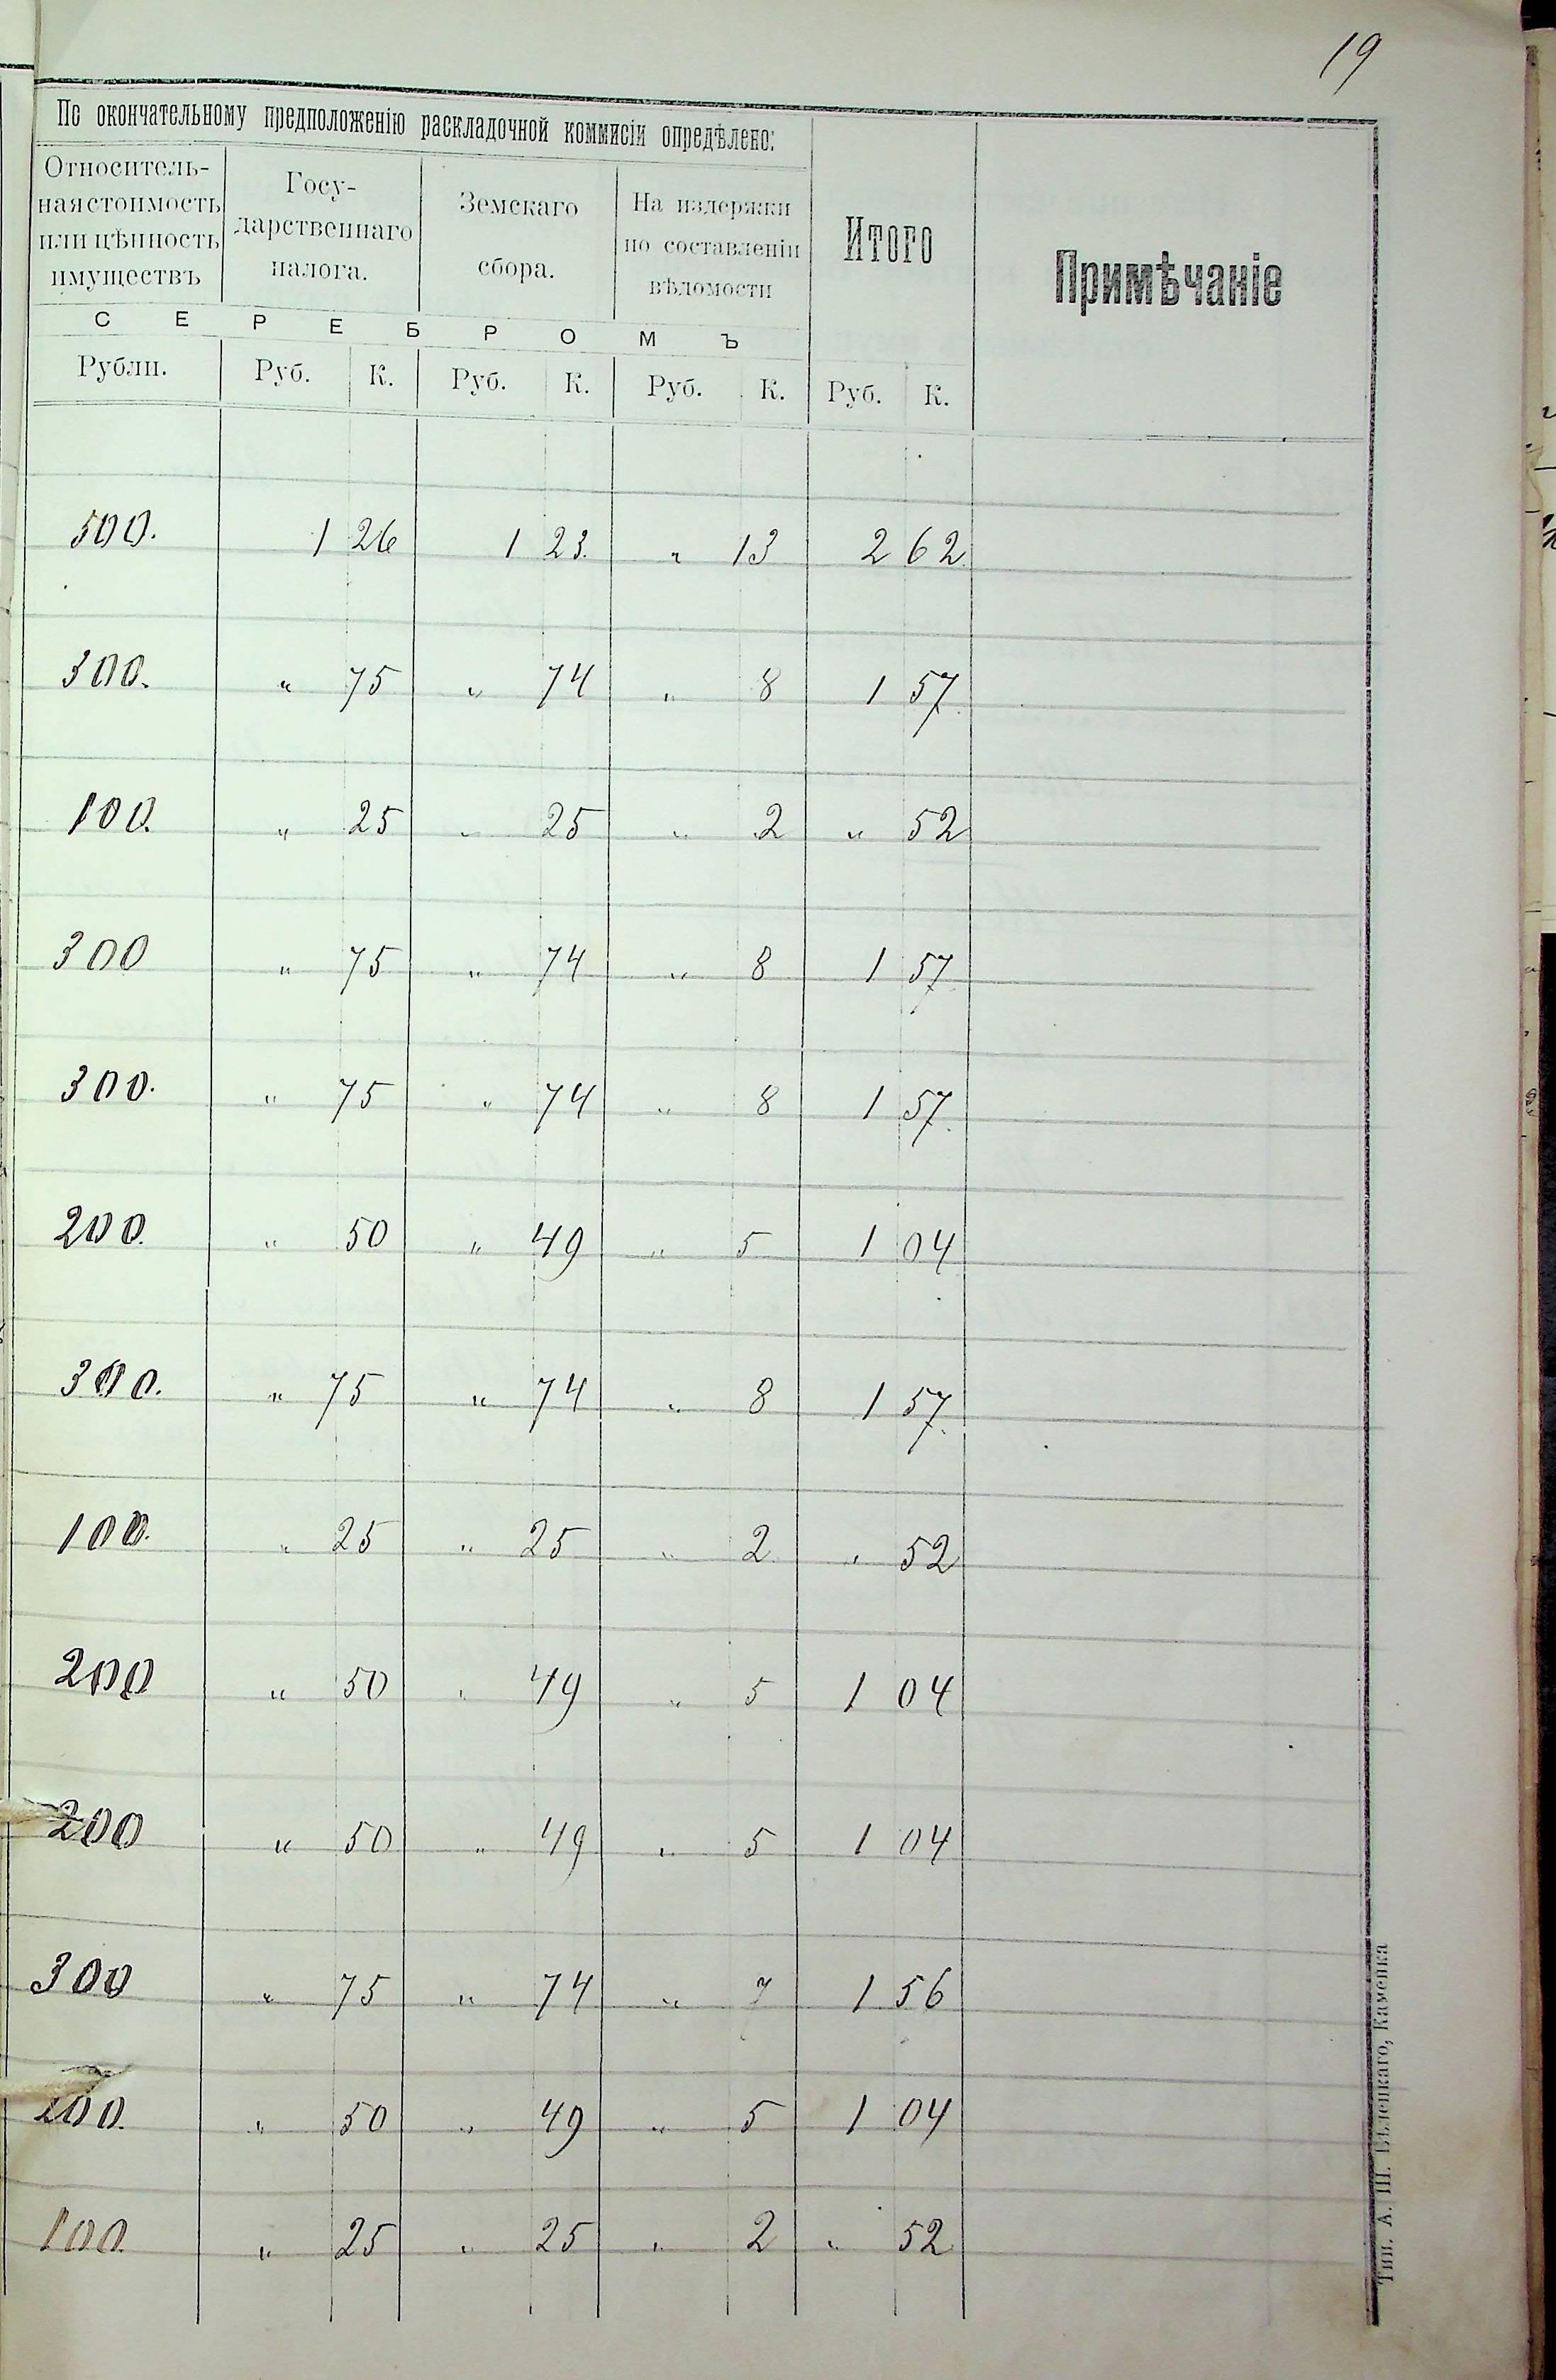 19
По окончательному предположенію раскладочной коммисіи опредѣлено:
Относитель-
ная стоимость
или цѣнность
имуществъ
Госу-
дарственнаго
налога.
Земскаго
сбора.
На издержки
по составленіи
вѣдомости
Итого
Примѣчаніе
СЕРЕБРОМЪ
Рубли. Руб. К. Руб. К. Руб. К. Руб. К.
500. 1 26 1 23. " 13 2 62
300. " 75 " 74 " 8 1 57
100. " 25 " 25 " 2 " 52
300 " 75 " 74 " 8 1 57
300. " 75 " 74 " 8 1 57
200. " 50 " 49 " 5 1 04
300. " 75 " 74 " 8 1 57
100. " 25 " 25 " 2 " 52
200 " 50 " 49 " 5 1 04
200 " 50 " 49 " 5 1 04
300 " 75 " 74 " 7 1 56
200. " 50 " 49 " 5 1 04
100. " 25 " 25 " 2 " 52
Тип. А. Ш. Каменка